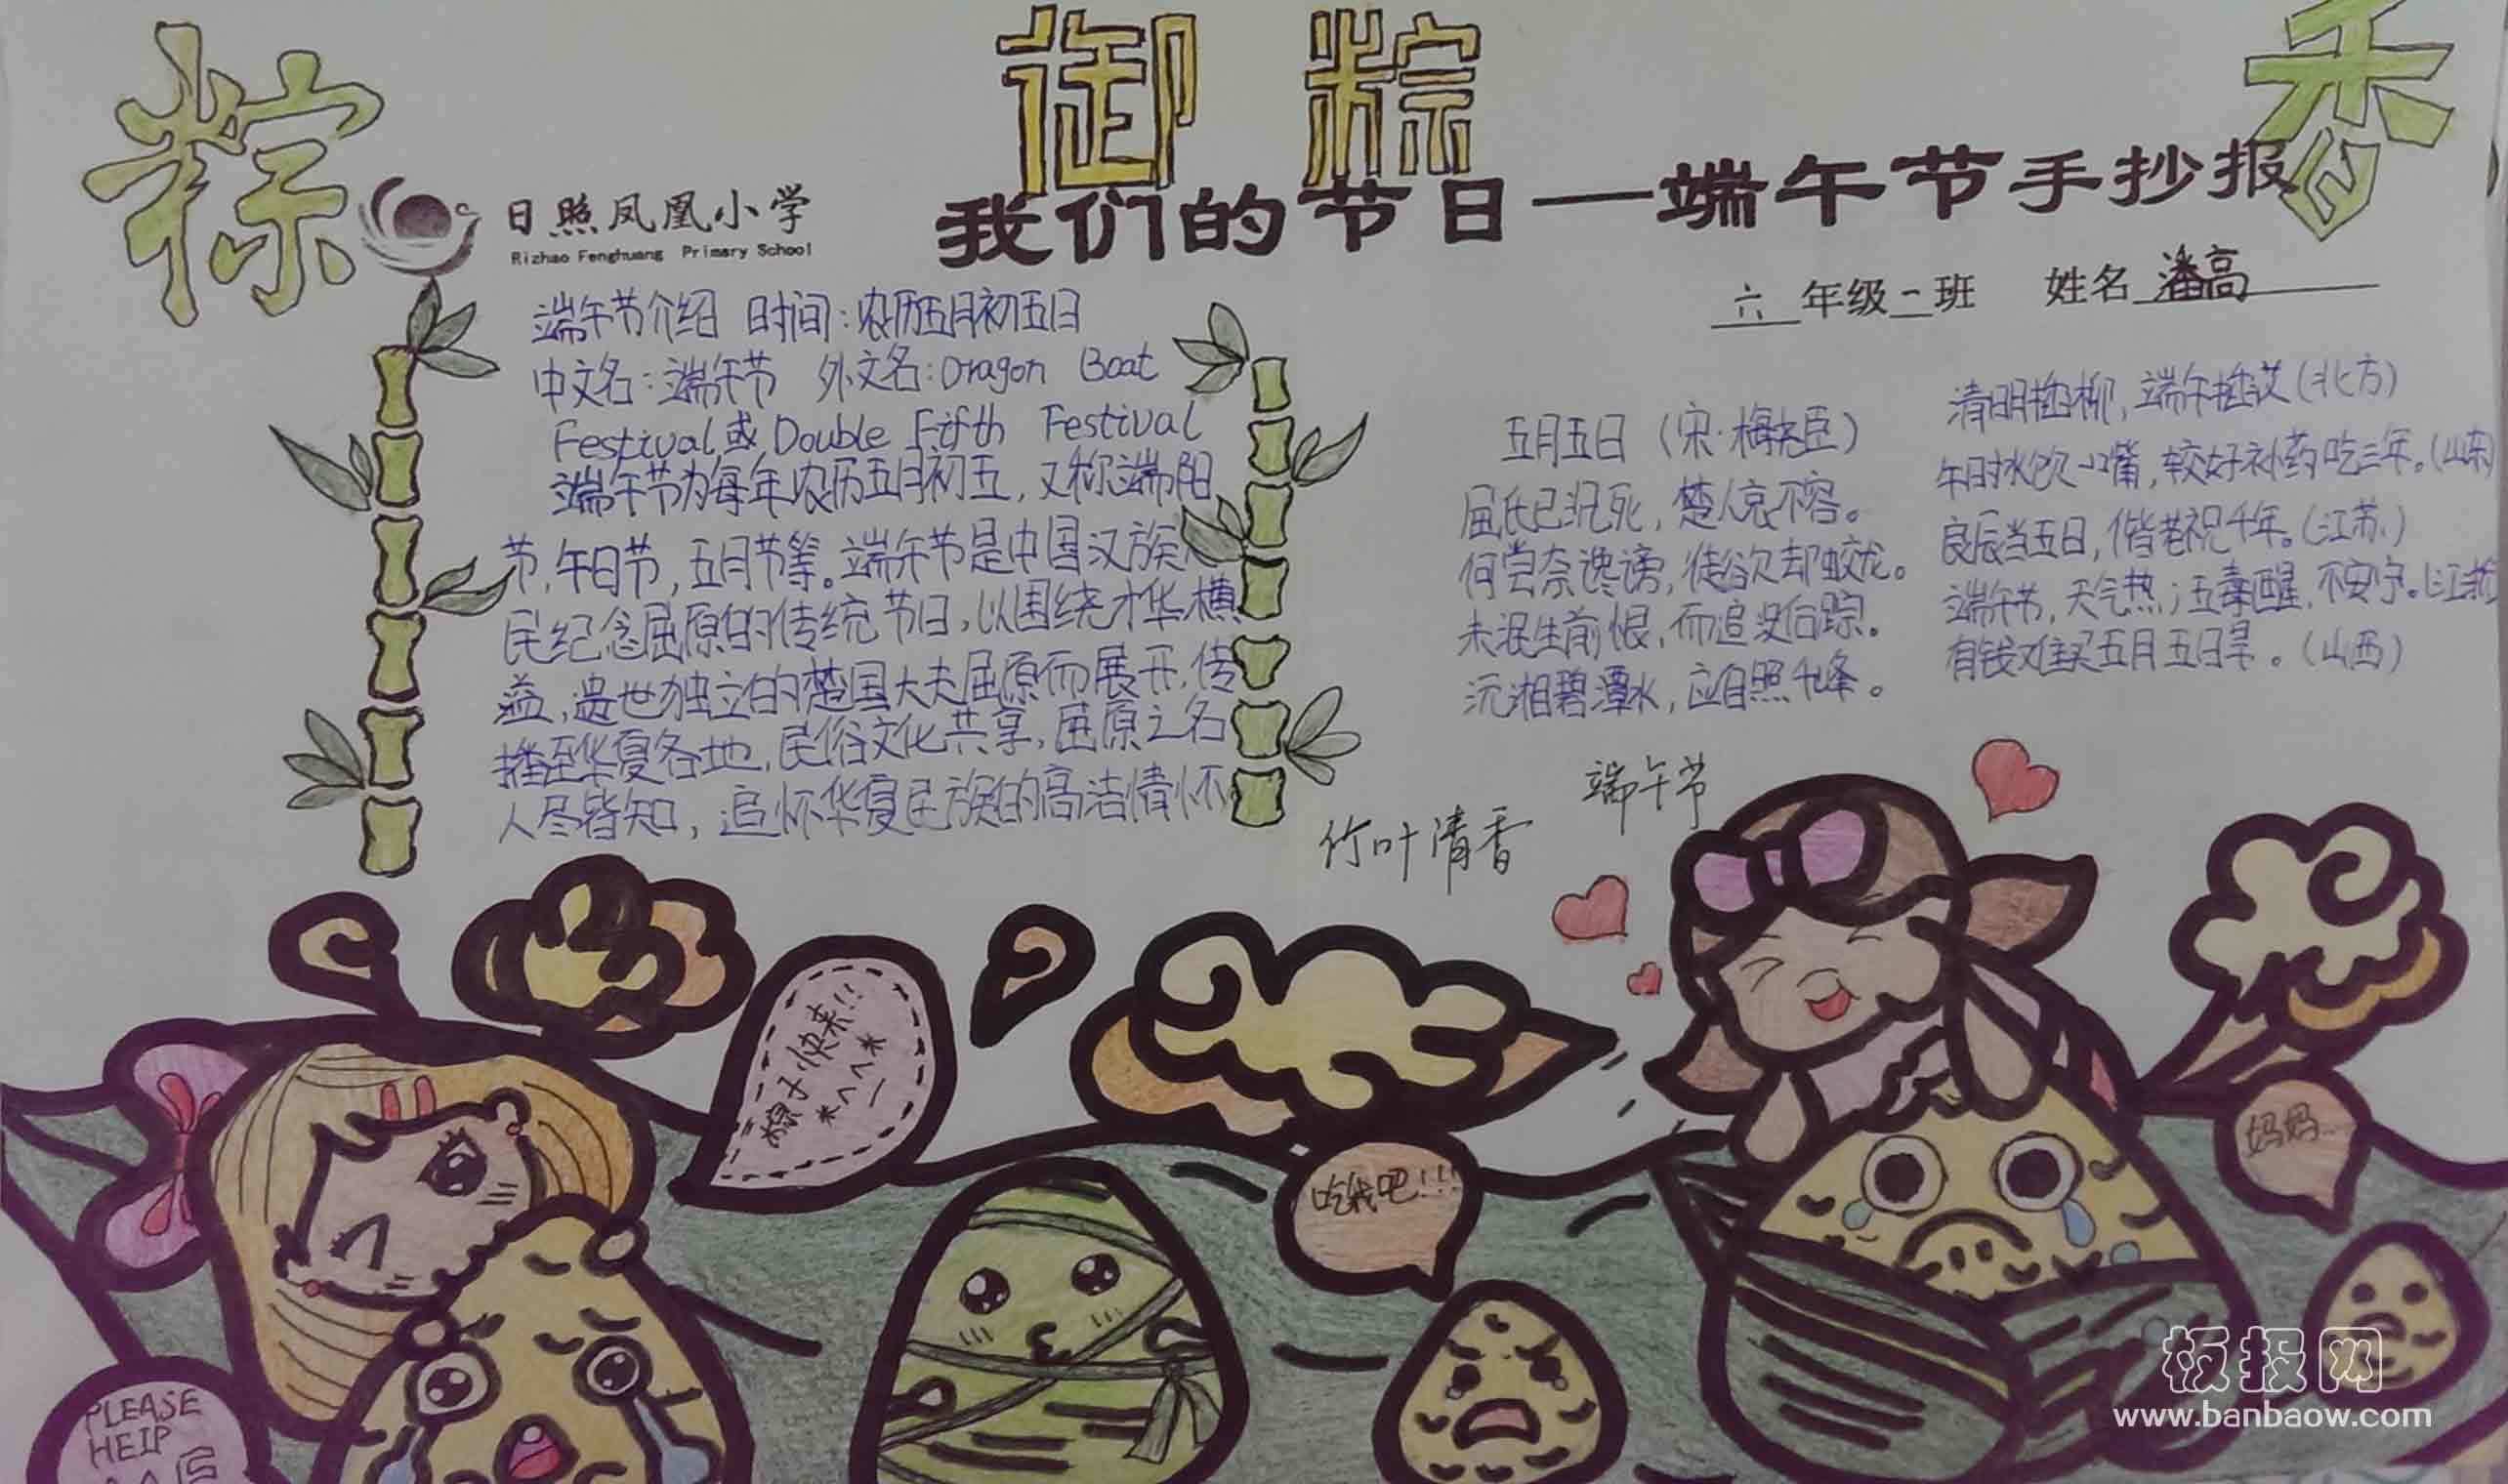 粽
御 粽
香
日照凤凰小学
Rizhao Fenghuang Primary School
我们的节日—端午节手抄报
六 年级 二 班 姓名 潘高
端午节介绍 时间：农历五月初五日
中文名：端午节 外文名：Dragon Boat
Festival或Double Fifth Festival
端午节为每年农历五月初五，又称端阳
节，午日节，五月节等。端午节是中国汉族人
民纪念屈原的传统节日，以围绕才华横
溢、遗世独立的楚国大夫屈原而展开，传
播至华夏各地，民俗文化共享，屈原之名
人尽皆知，追怀华夏民族的高洁情怀
五月五日（宋·梅尧臣）
屈氏已沉死，楚人哀不容。
何尝奈谗谤，徒欲却蛟龙。
未泯生前恨，而追没后踪。
沅湘碧潭水，应自照千峰。
清明插柳，端午插艾（北方）
午时水饮一嘴，较好补药吃三年。（山东
良辰当五日，偕老祝千年。（江苏）
端午节，天气热；五毒醒，不安宁。（江苏
有钱难买五月五日旱。（山西）
端午节
竹叶清香
粽子快来!!
*^^*
吃我吧!!!
妈妈...
PLEASE
HEIP
ME
板报网
www.banbaow.com